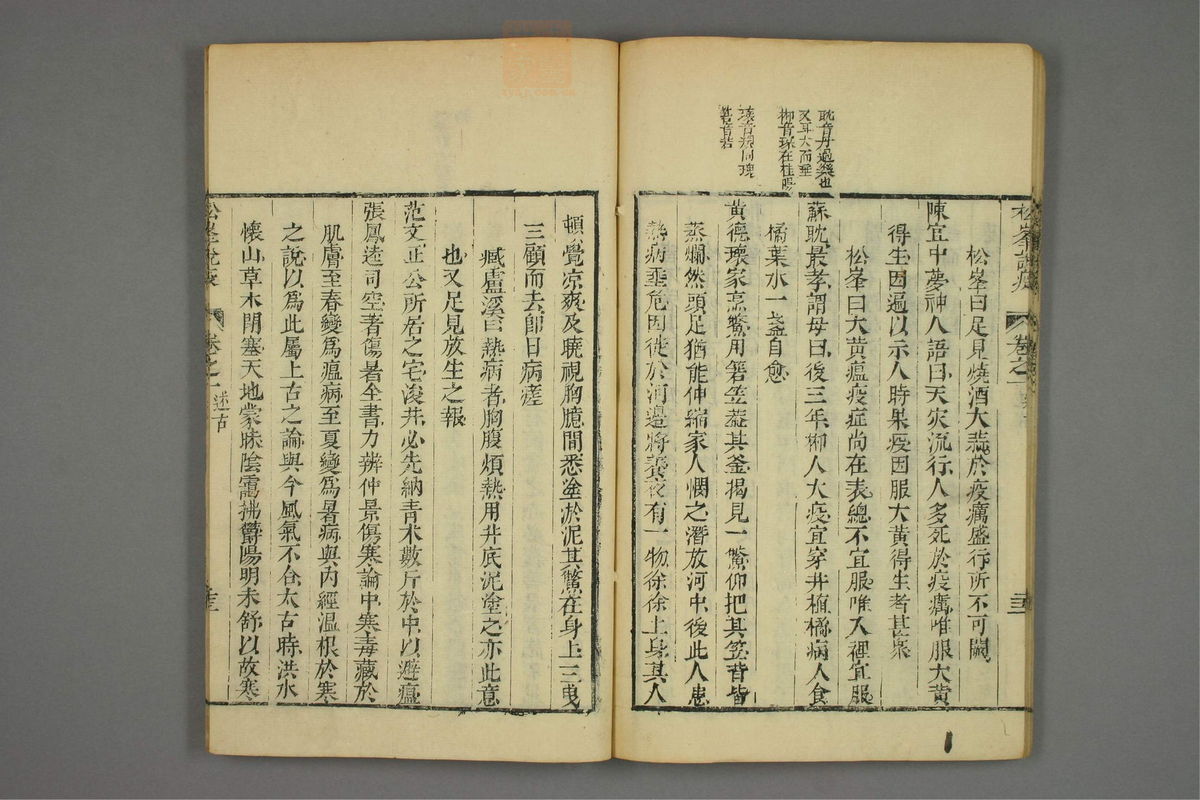 耽音丹過樂也
又耳大而垂
郴音琛在桂陽
瓌音瑰同瑰
箬音若
松峯說疫
卷之一
松峯曰足見燒酒大蒜於疫癘盛行所不可闕
陳宜中夢神人語曰天灾流行人多死於疫癘唯服大黃
得生因遍以示人時果疫因服大黃得生者甚衆
松峯曰大黃瘟疫症尚在表總不宜服唯入裡宜服
蘇耽最孝謂母曰後三年郴人大疫宜穿井植橘病人食
橘葉水一盞自愈
黃德瓌家烹鱉用箬笠葢其釜揭見一鱉仰把其笠背皆
蒸爛然頭足猶能伸縮家人憫之潛放河中後此人患
熱病垂危因徙於河邊將養夜有一物徐徐上身其人
頓覺凉爽及曉視胸臆間悉塗於泥其鱉在身上三曳
三顧而去卽日病瘥
臧盧溪曰熱病者胸腹煩熱用井底泥塗之亦此意
也又足見放生之報
范文正公所居之宅浚井必先納青朮數斤於中以避瘟
張鳳逵司空著傷暑全書力辨仲景傷寒論中寒毒藏於
肌膚至春變爲瘟病至夏變爲暑病與內經溫根於寒
之說以爲此屬上古之論與今風氣不合太古時洪水
懷山草木閉塞天地蒙昧陰霾拂鬱陽明未舒以故寒
松峯說疫
卷之一
述古